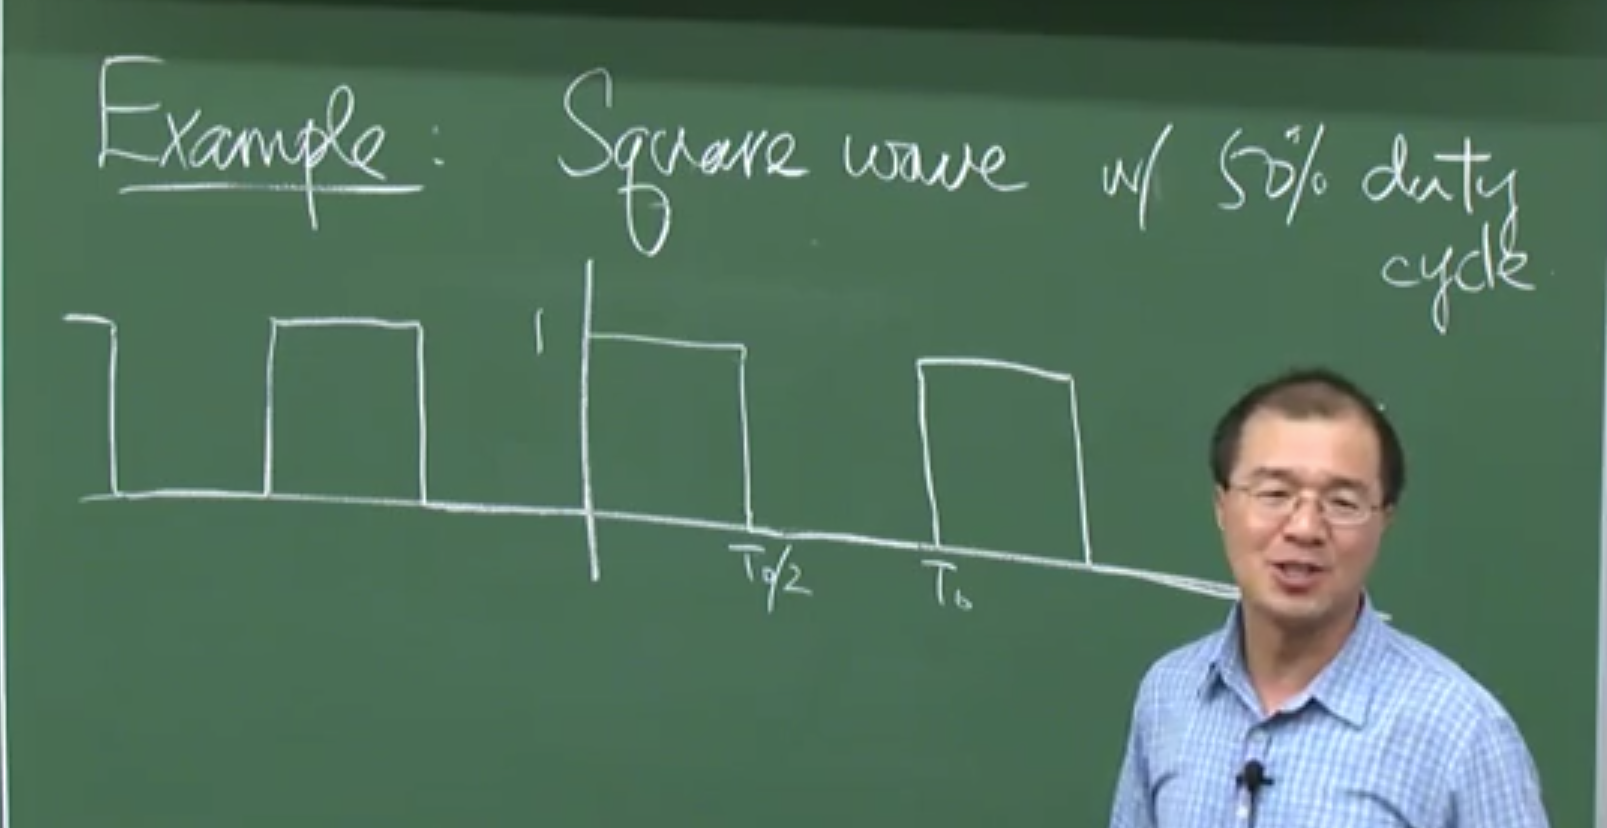 Example: Square wave w/ 50% duty
cycle.
1
T₀/2
T₀